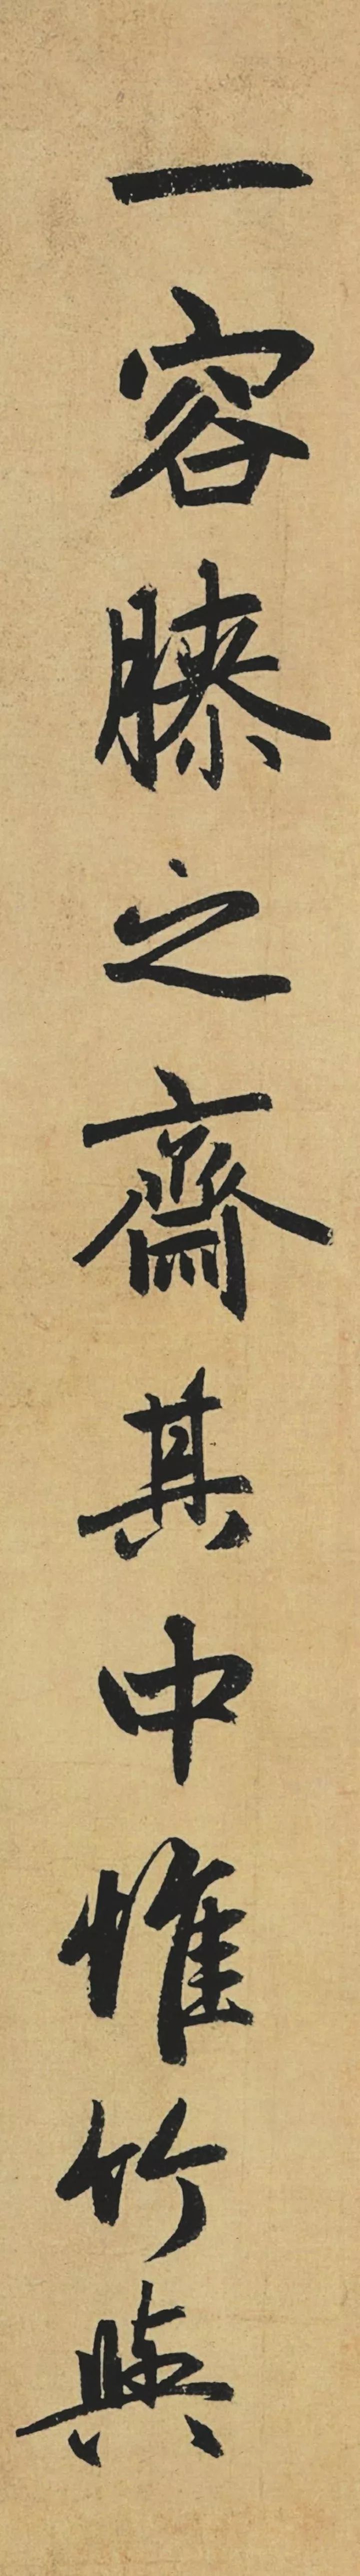 一容膝之齋其中惟竹與